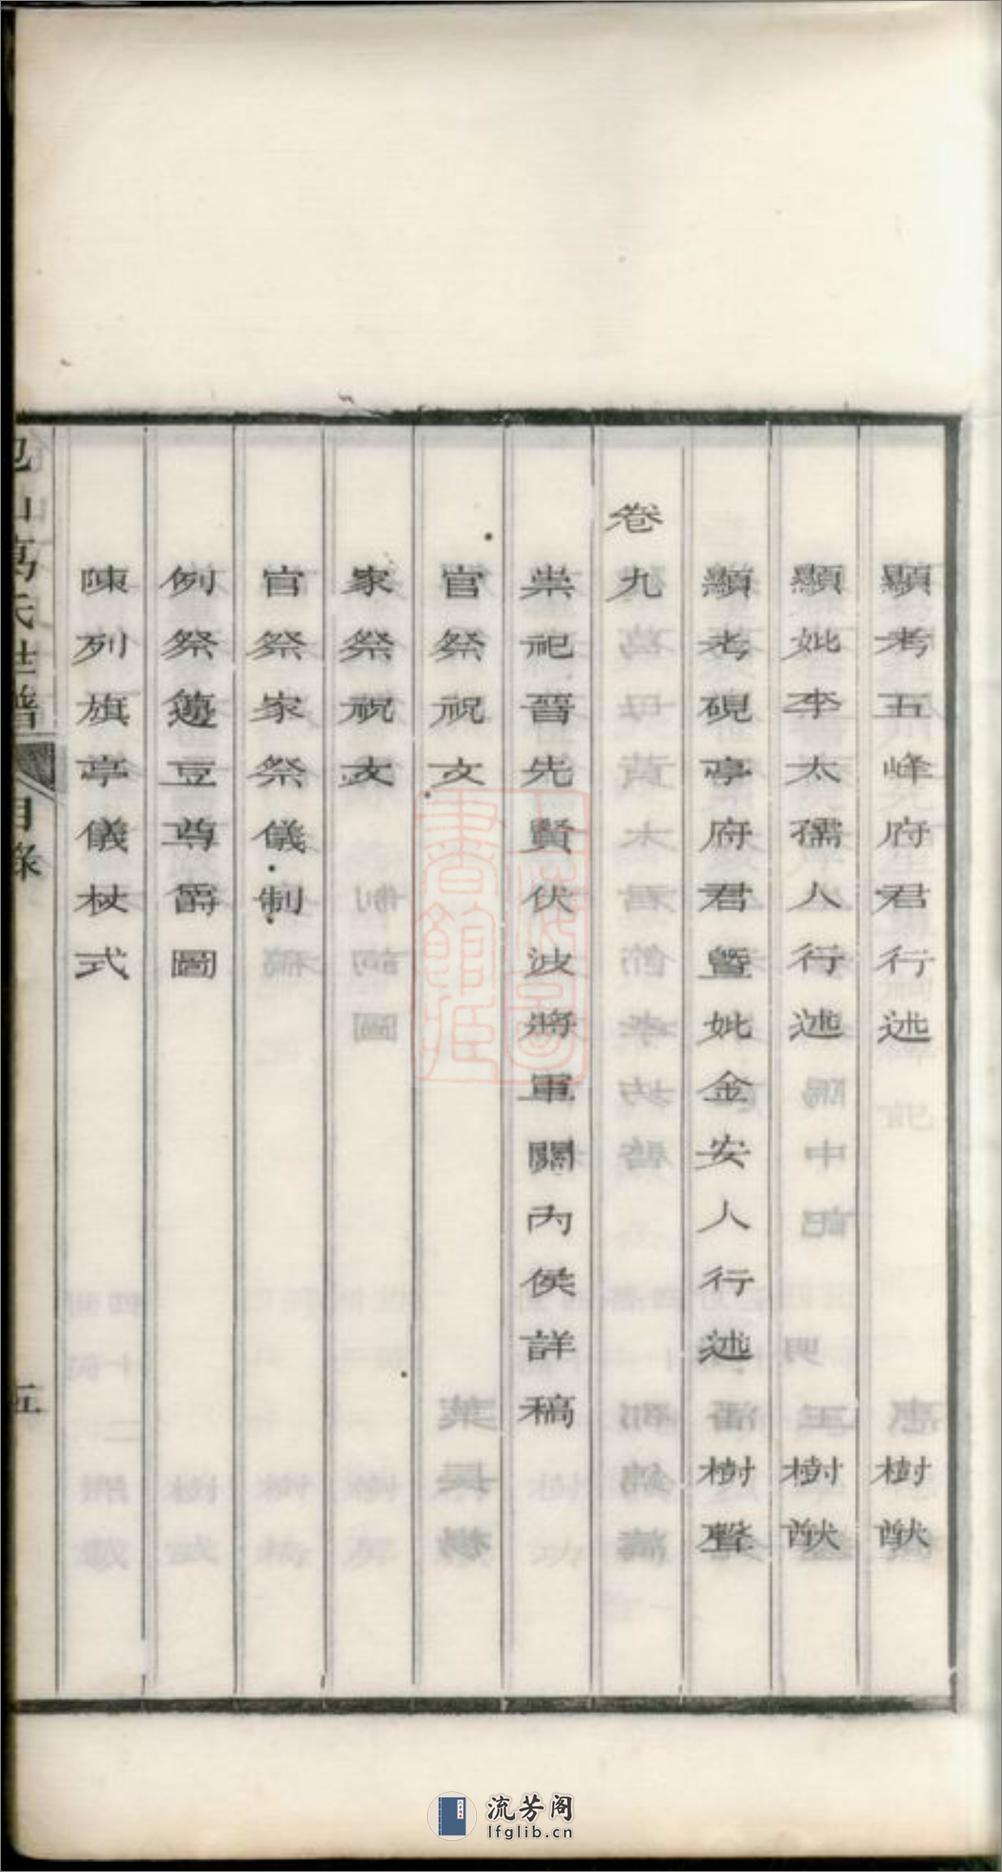 顯考五峰府君行述 樹猷
顯妣李太孺人行述 樹猷
顯考硯亭府君暨妣金安人行述 樹聲
卷九
崇祀晉先賢伏波將軍關內侯詳稿
官祭祝文
家祭祝文
官祭家祭儀制
例祭籩豆尊爵圖
陳列旗亭儀杖式
山葛氏世譜 目錄 五
流芳阁
lfglib.cn